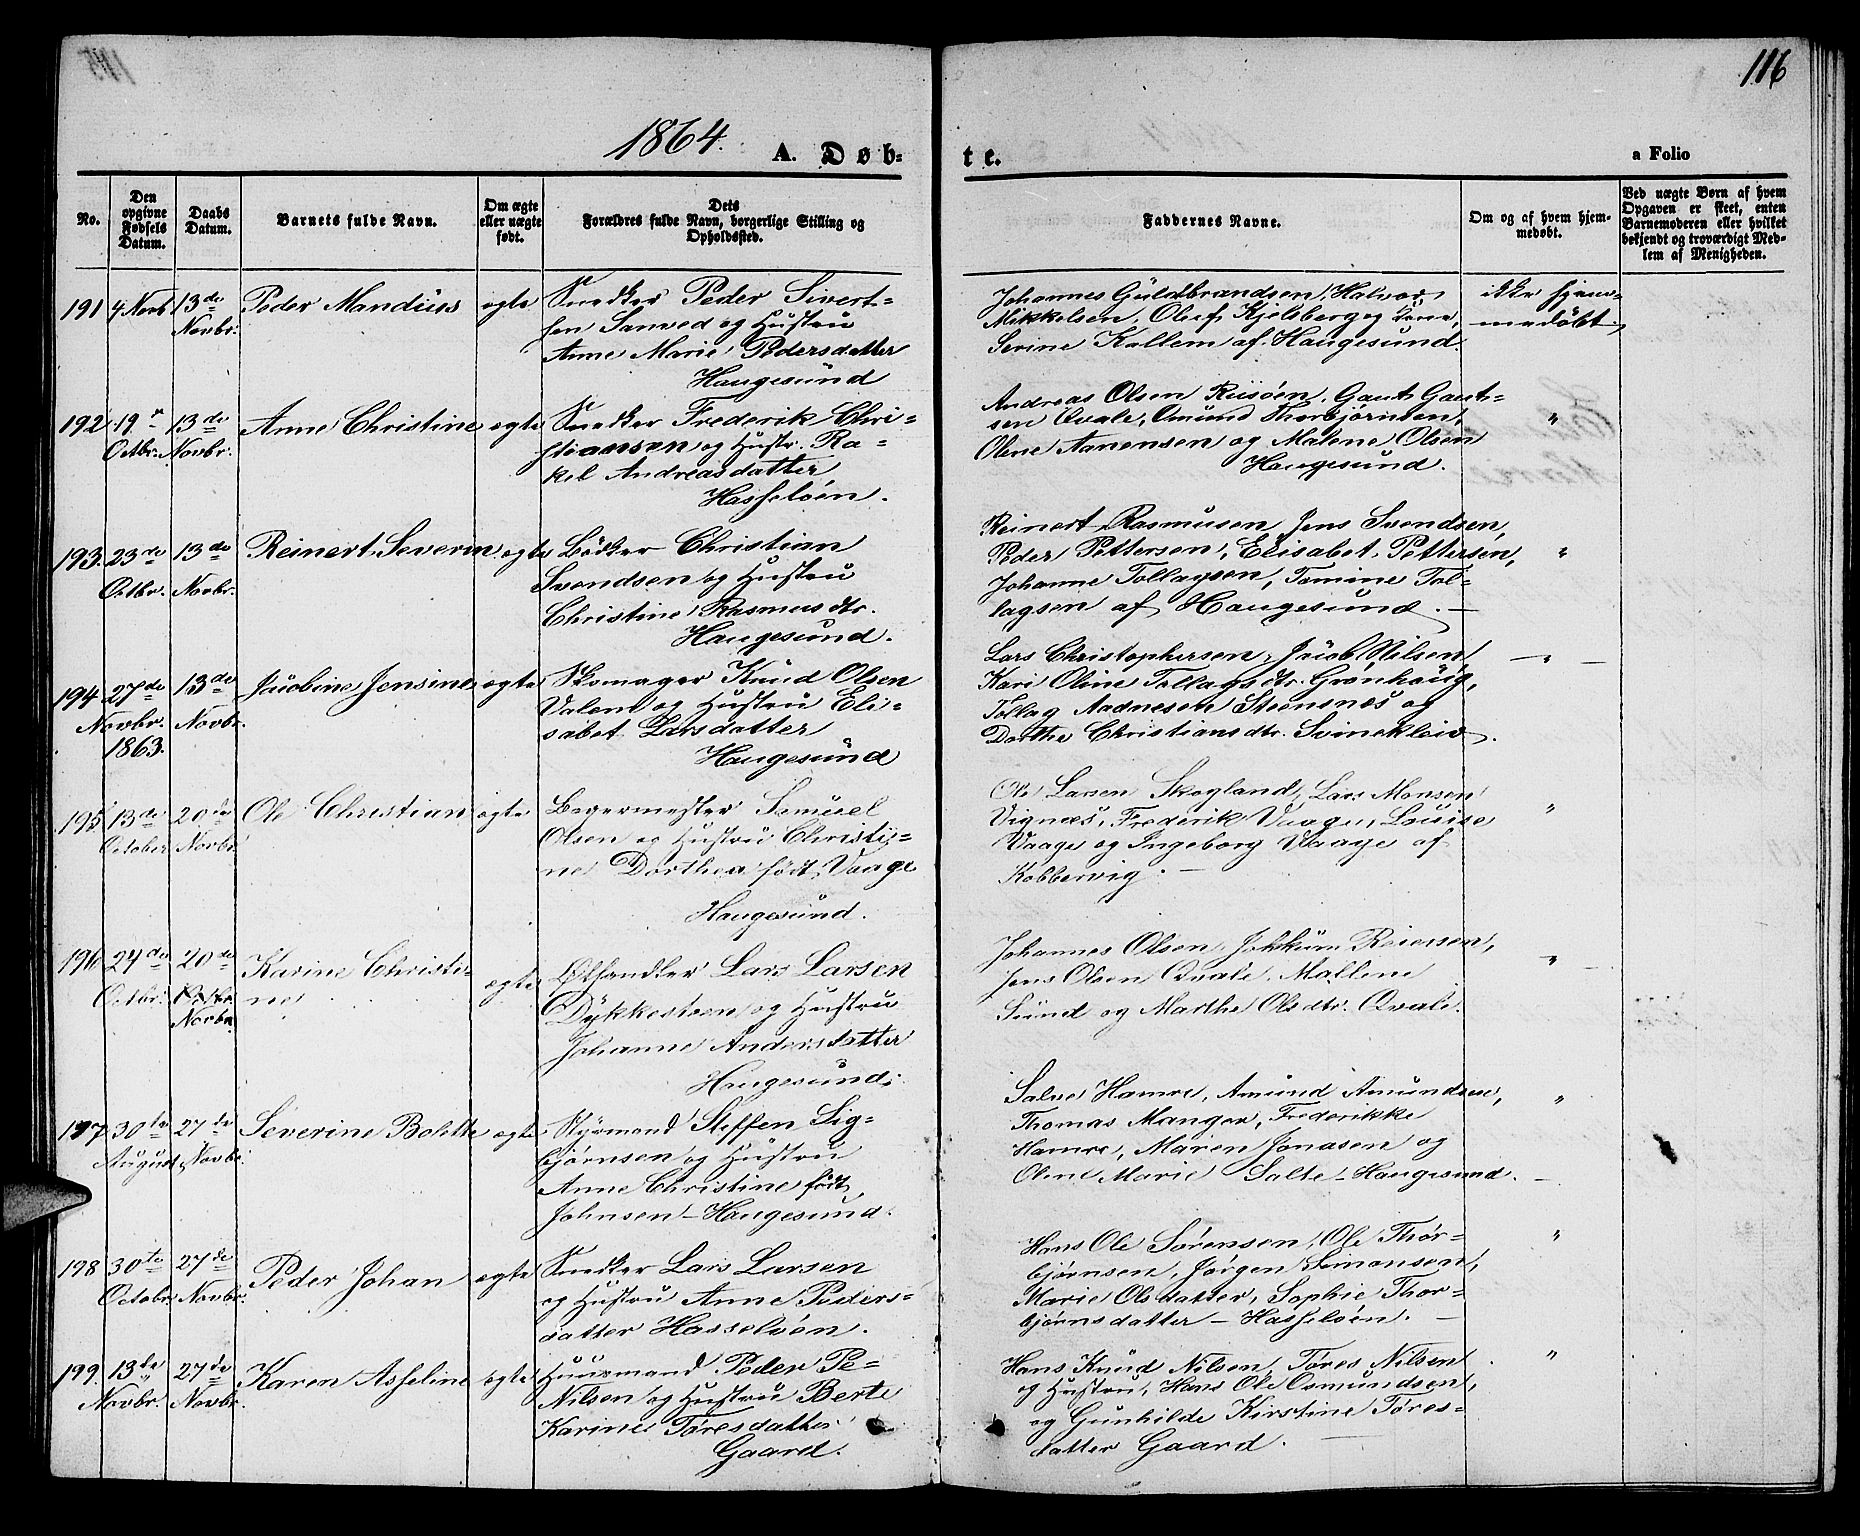 116
1864.
A. Døb-
te.
a Folio
No.
Den opgivne Fødsels Datum.
Daabs Datum.
Barnets fulde Navn.
Om ægte eller uægte født.
Dets Forældres fulde Navn, borgerlige Stilling og Opholdssted.
Faddernes Navne.
Om og af hvem hjemmedøbt.
Ved uægte Børn af hvem Opgaven er skeet, enten Barnemoderen eller hvilket bekjendt og troværdigt Medlem af Menigheden.
191 4 Novb 13de Novbr. Peder Mandius egte
Snedker Peder Sivert-
sen Sanved og Hustru
Anne Marie Pedersdatter
Haugesund
Johannes Guldbrandsen, Halvor
Mikkelsen, Oluf Kjelsberg og
Serine Kallem af Haugesund.
ikke hjem-
medøbt.
192 19 Octbr. 13de Novbr. Anne Christine egte
Snedker Frederik Chri-
stiansen og Hustr. Ra-
kel Andreasdatter
Hasseløen.
Andreas Olsen Risøen, Gauth Gauth-
sen Evale, Omund Thorbjørnsen,
Oline Aanensen og Malene Olsen
Haugesund.
"
193. 23de Octbr. 13de Novbr. Reinert Severin egte
Bødker Christian
Svendsen og Hustru
Christine Rasmusdtr.
Haugesund.
Reinert Rasmusen, Jens Svendsen,
Peder Pettersen, Elisabet Pettersen,
Johanne Tollagsen, Tomine Tol-
lagsen af Haugesund. —
"
194 27de Novbr. 1863. 13de Novbr. Jacobine Jensine egte
Skomager Knud Olsen
Valem og Hustru Eli-
sabet Larsdatter
Haugesund
Lars Christophersen, Jacob Nilsen
Kari Oline Tollagsdtr. Grønhaug,
Tollag Aadnesen Steensnes og
Dorthe Christiansdtr. Svinekleiv.
— " —
195 13de October 20de Novbr Ole Christian egte
Bagermester Samuel
Olsen og Hustru Christi-
ne Dorthea født Vaage
Haugesund.
Ole Larsen Skogland, Lars Monsen
Vignæs, Frederik Vaage, Louise
Vaage og Ingeborg Vaage af
Kobbervig. —
"
196 24de Octbr. 20de Octbr. Novbr. Karine Christi-
ne egte
Ølhandler Lars Larsen
Dykkesteen og Hustru
Johanne Andersdatter
Haugesund.
Johannes Olsen, Jokkum Reiersen,
Jens Olsen Qvale, Mallene
Sund og Marthe Olsdtr. Qvale.
"
197 30te August 27de Novbr. Severine Bohtte egte
Styrmand Steffen Sig-
bjørnsen og Hustru
Anne Christine født
Johnsen – Haugesund.
Salve Hamre, Amund Amundsen,
Thomas Manger, Frederikke
Hamre, Maren Jonasen og
Oline Marie Salte – Haugesund. —
"
198 30te Octobr. 27de Novbr. Peder Johan egte
Snedker Lars Larsen
og Hustru Anne Peders-
datter Hasseløen.
Hans Ole Sørensen, Ole Thor-
bjørnsen, Jørgen Simonsen,
Marie Olsdatter, Sophie Thor-
bjørnsdatter – Hasseløen. —
"
199. 13de Novbr. 27de Novbr. Karen Asseline egte
Huusmand Peder Pe-
Nilsen og Hustru Berte
Karine Tøresdatter
Gaard.
Hans Knud Nilsen, Tøres Nilsen
og Hustru, Hans Ole Osmundsen,
og Gunhilde Kirstine Tøres-
datter Gaard.
"